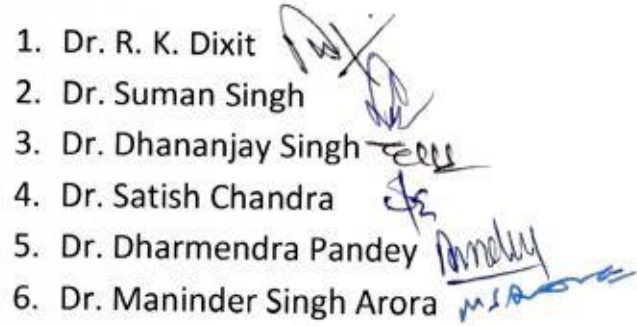 1. Dr. R. K. Dixit
2. Dr. Suman Singh
3. Dr. Dhananjay Singh
4. Dr. Satish Chandra
5. Dr. Dharmendra Pandey Pandey
6. Dr. Maninder Singh Arora MSArora